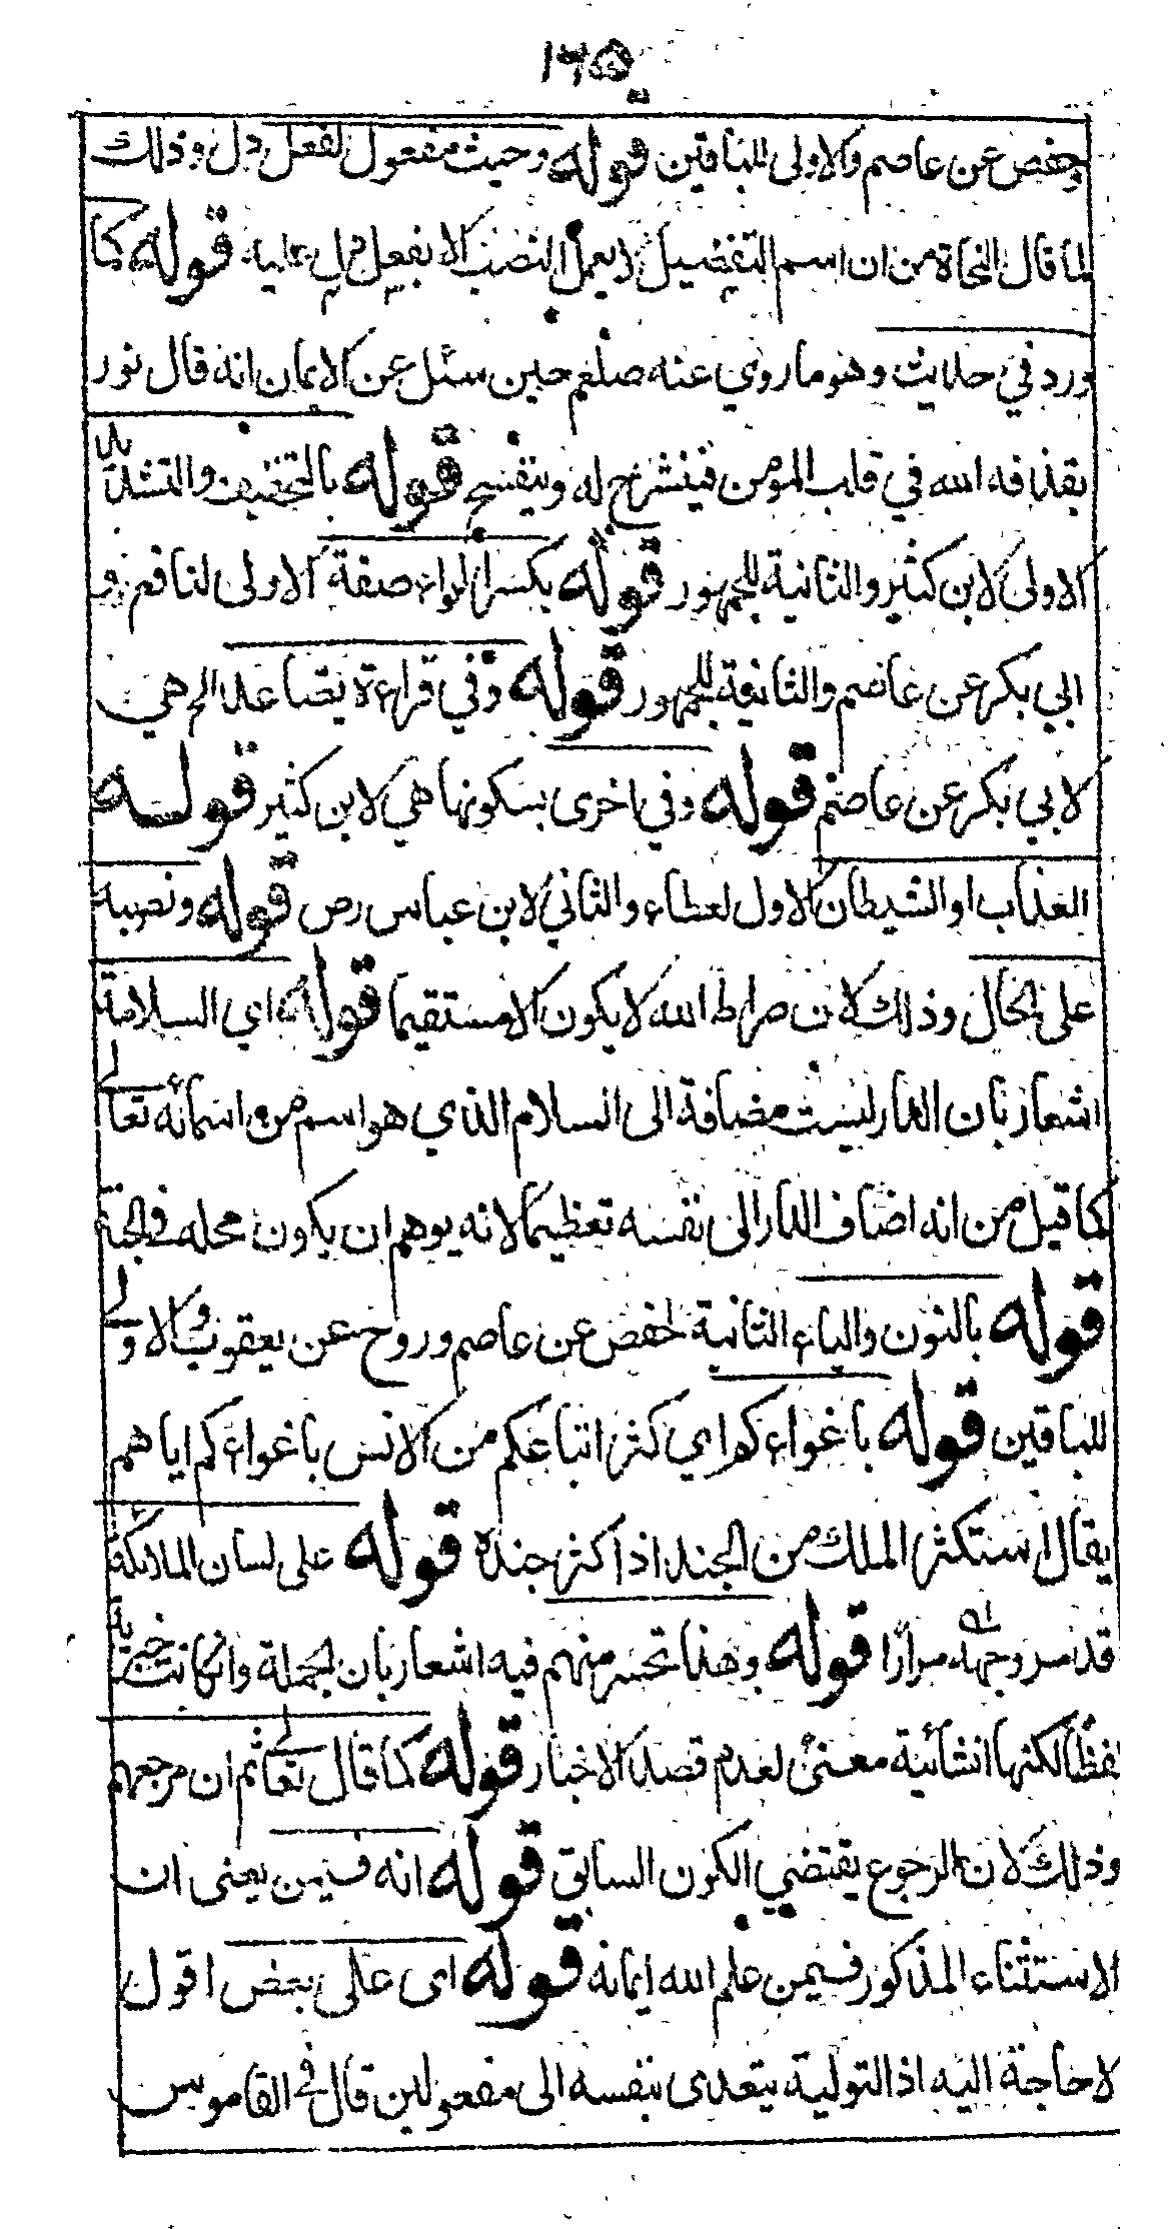 ١٦٥
حفص عن عاصم والاولى للباقين قوله وحيث مفعول لفعل دل وذلك
لما قال النحاة من ان اسم التفضيل لا يعمل النصب الا بفعل دل عليه قوله كما
ورد في حديث وهو ما روي عنه صلعم حين سئل عن الايمان انه قال نور
يقذفه الله في قلب المومن فينشرح له وينفسح قوله بالتخفيف والتشديد
الاولى لابن كثير والثانية للجمهور قوله بكسر الراء صفة الاولى لنافع و
ابي بكر عن عاصم والثانية للجمهور قوله وفي قراءة يصاعد الخ هي
لابي بكر عن عاصم قوله وفي اخرى بسكونها هي لابن كثير قوله
العذاب او الشيطان الاول لعطاء والثاني لابن عباس رض قوله ونصبه
على الحال وذلك لان صراط الله لا يكون الا مستقيما قوله اي السلامة
اشعار بان الدار ليست مضافة الى السلام الذي هو اسم من اسمائه تعالى
كما قيل من انه اضاف الدار الى نفسه تعظيما لانه يوهم ان يكون محله في الجنة
قوله بالنون والياء الثانية لحفص عن عاصم وروح عن يعقوب والاولى
للباقين قوله باغواءكم اي كثر اتباعكم من الانس باغواءكم اياهم
يقال استكثر الملك من الجند اذا كثر جنده قوله على لسان الملائكة
قد مر وجهه مرارًا قوله وهذا تحسر منهم فيه اشعار بان الجملة وان كانت خبرية
لفظًا لكنها انشائية معنىً لعدم قصد الاخبار قوله كما قال تعالى ثم ان مرجعهم
وذلك لان الرجوع يقتضي الكون السابق قوله انه فيمن يعنى ان
الاستثناء المذكور فيمن علم الله ايمانه قوله اى على بعض اقول
لا حاجة اليه اذ التولية يتعدى بنفسه الى مفعولين قال في القاموس